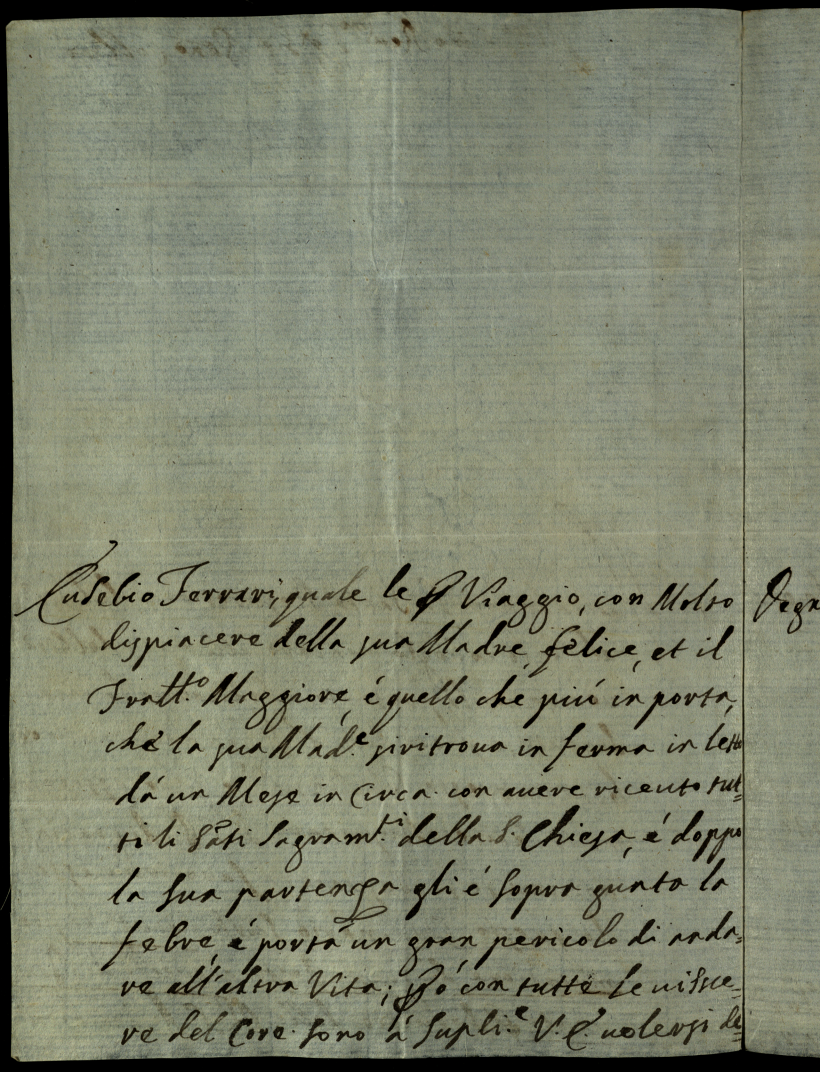 Eusebio Ferrari, quale le Viaggio, con Molto
dispiacere della sua Madre, felice, et il
Fratt.o Maggiore, é quello che piú in porta,
che la sua Mad.e si ritroua in ferma in letto
dá un Mese in Circa con auere riceuto tut=
ti li Sāti Sagram.ti della S. Chiesa, é doppo
la sua partenza gli é sopra gunta la
febre, é porta un gran pericolo di anda=
re all'altra Vita; ꝑó con tutte le uisce=
re del Core sono á supli.e V. E. uolersi de=
Degn